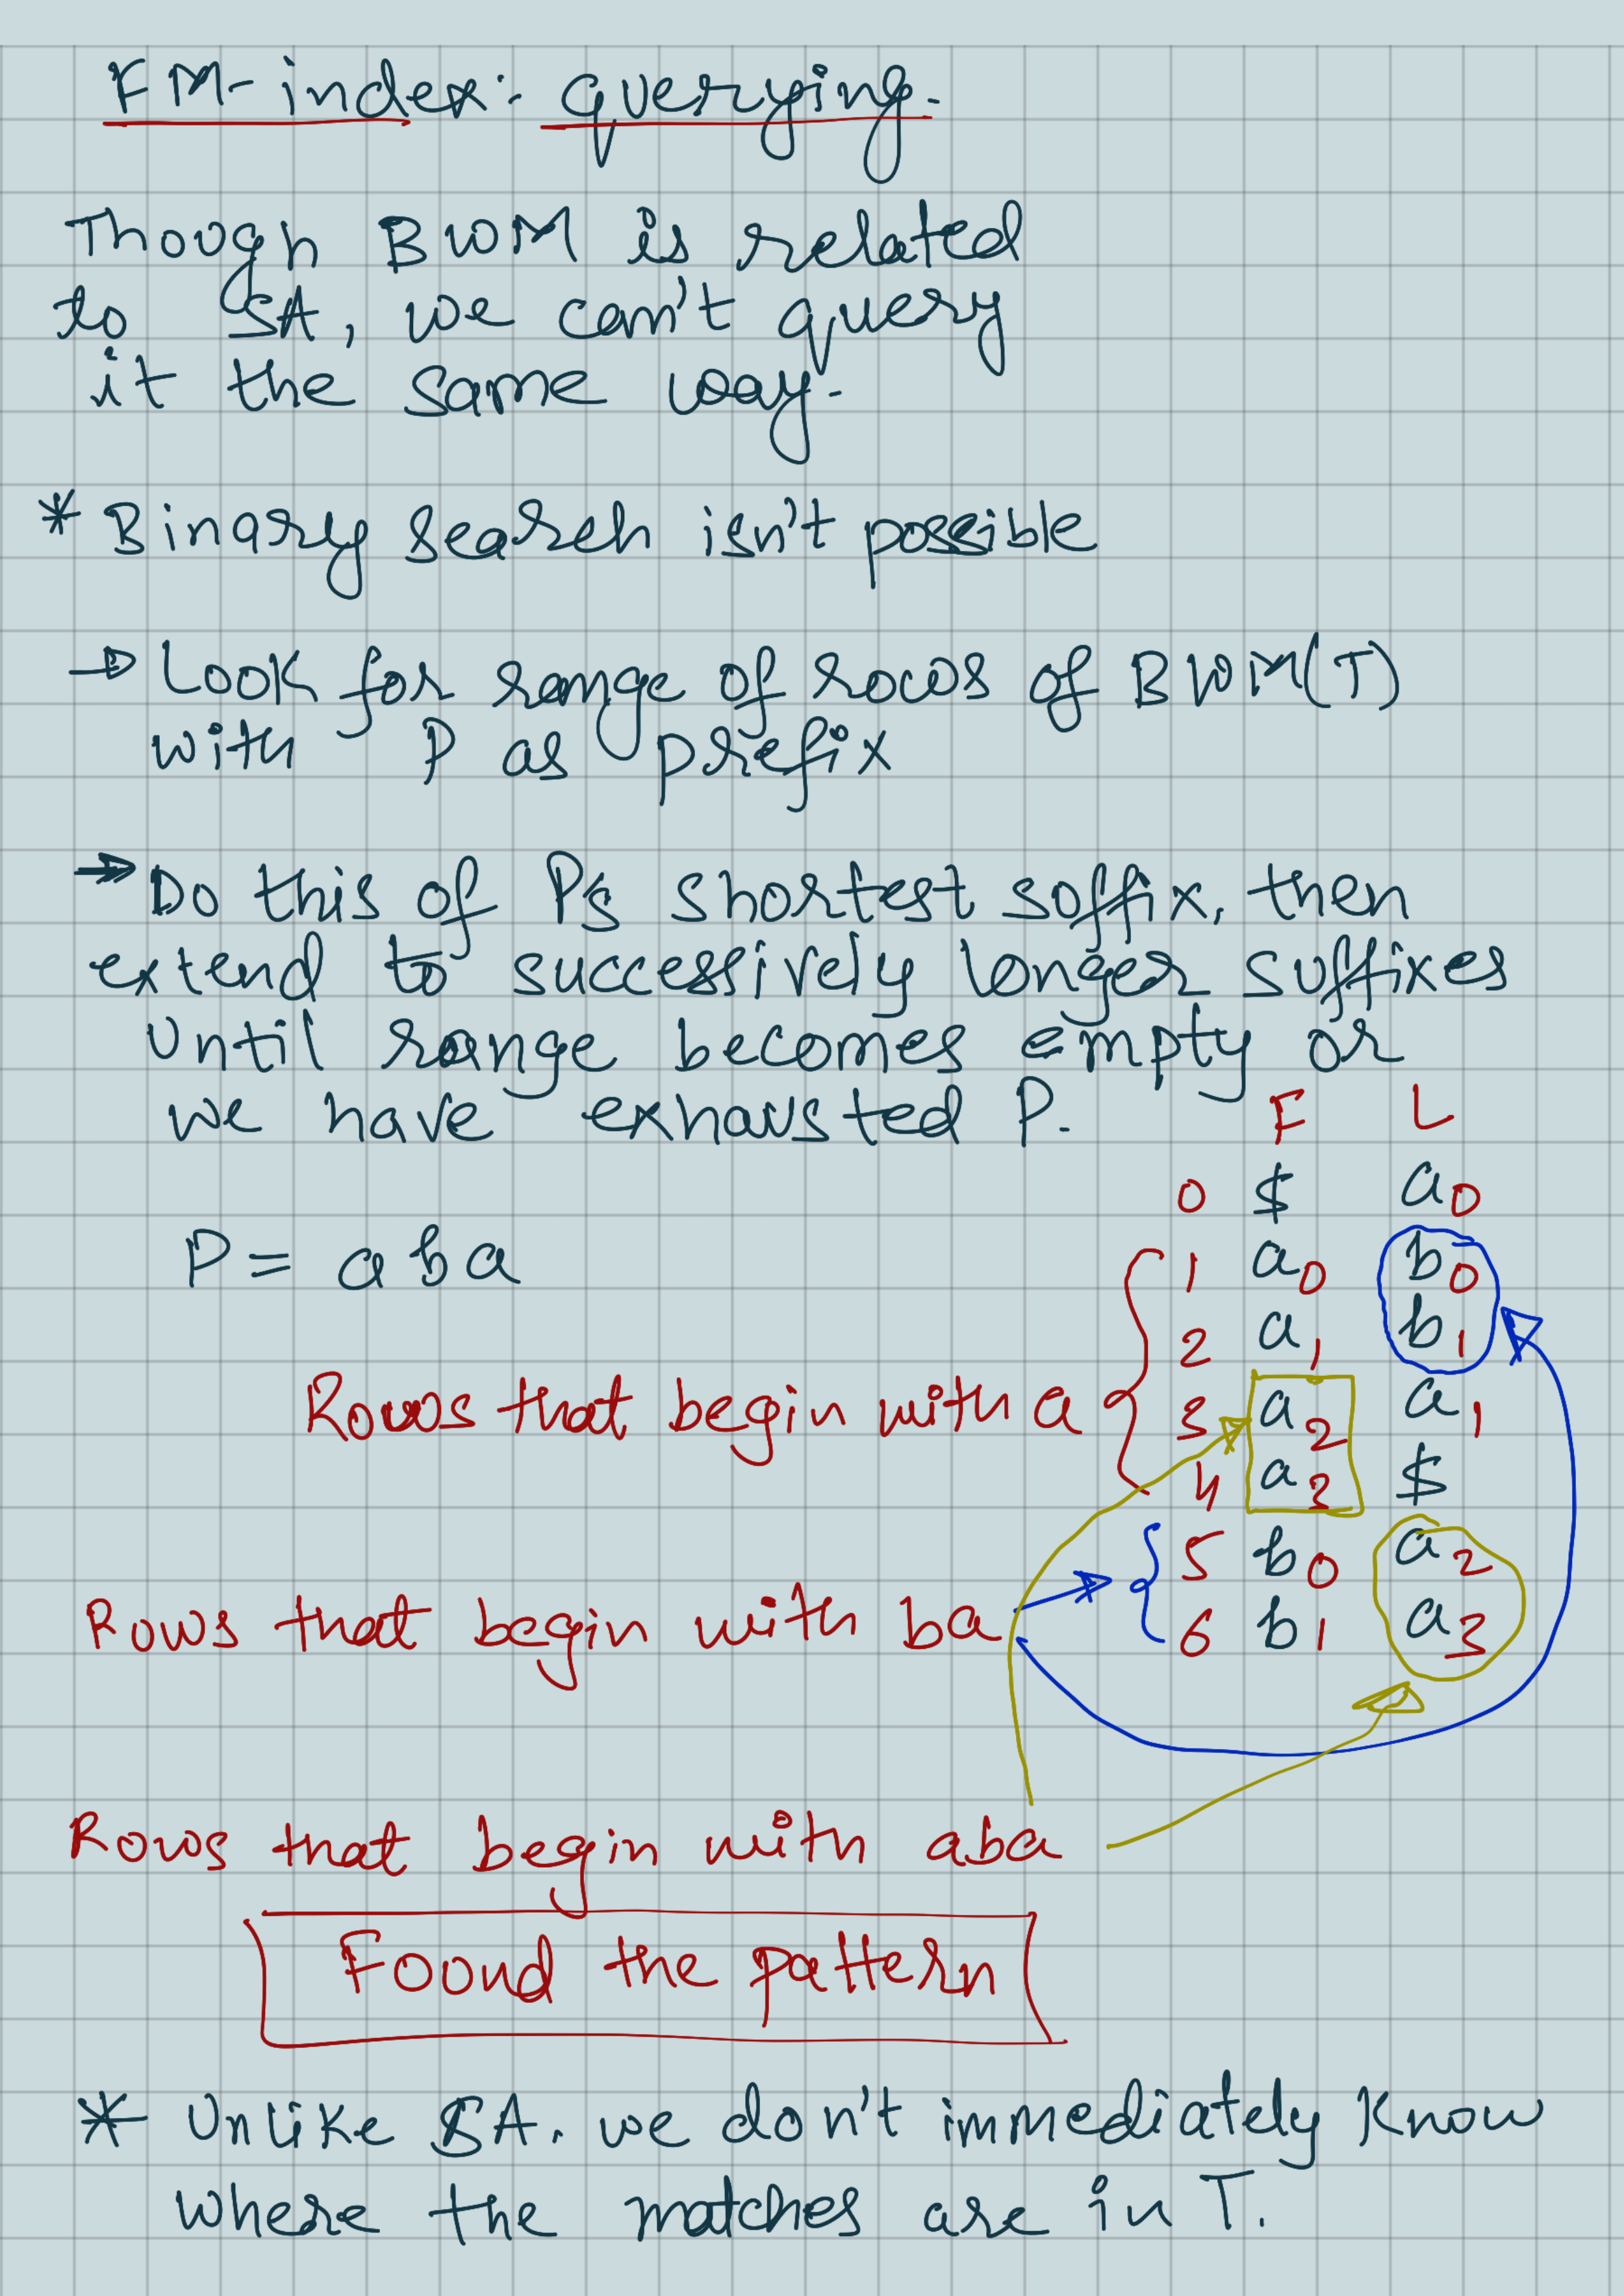 FM-index: querying.
Though BWM is related
to SA, we can't query
it the same way.
* Binary search isn't possible
→ Look for range of rows of BWM(T)
with P as prefix
→ Do this of P's shortest soffix, then
extend to successively longer suffixes
until range becomes empty or
we have exhausted P.
F L
0 $ a0
P = aba
1 a0 b0
2 a1 b1
Rows that begin with a 3 a2 a1
4 a3 $
5 b0 a2
Rows that begin with ba 6 b1 a3
Rows that begin with aba
Foond the pattern
* Unlike SA, we don't immediately know
where the matches are in T.